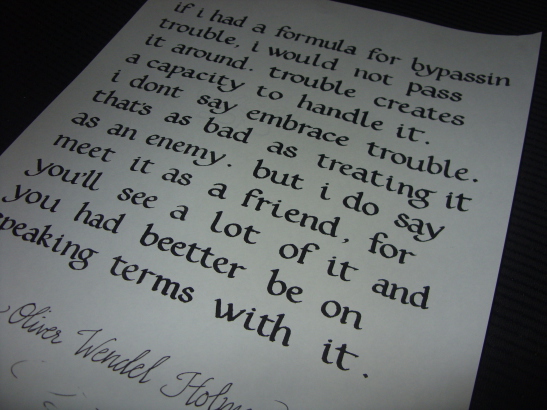 if i had a formula for bypassin
trouble, i would not pass
it around. trouble creates
a capacity to handle it.
i dont say embrace trouble.
that's as bad as treating it
as an enemy. but i do say
meet it as a friend, for
you'll see a lot of it and
you had beetter be on
peaking terms with it.
Oliver Wendel Holm